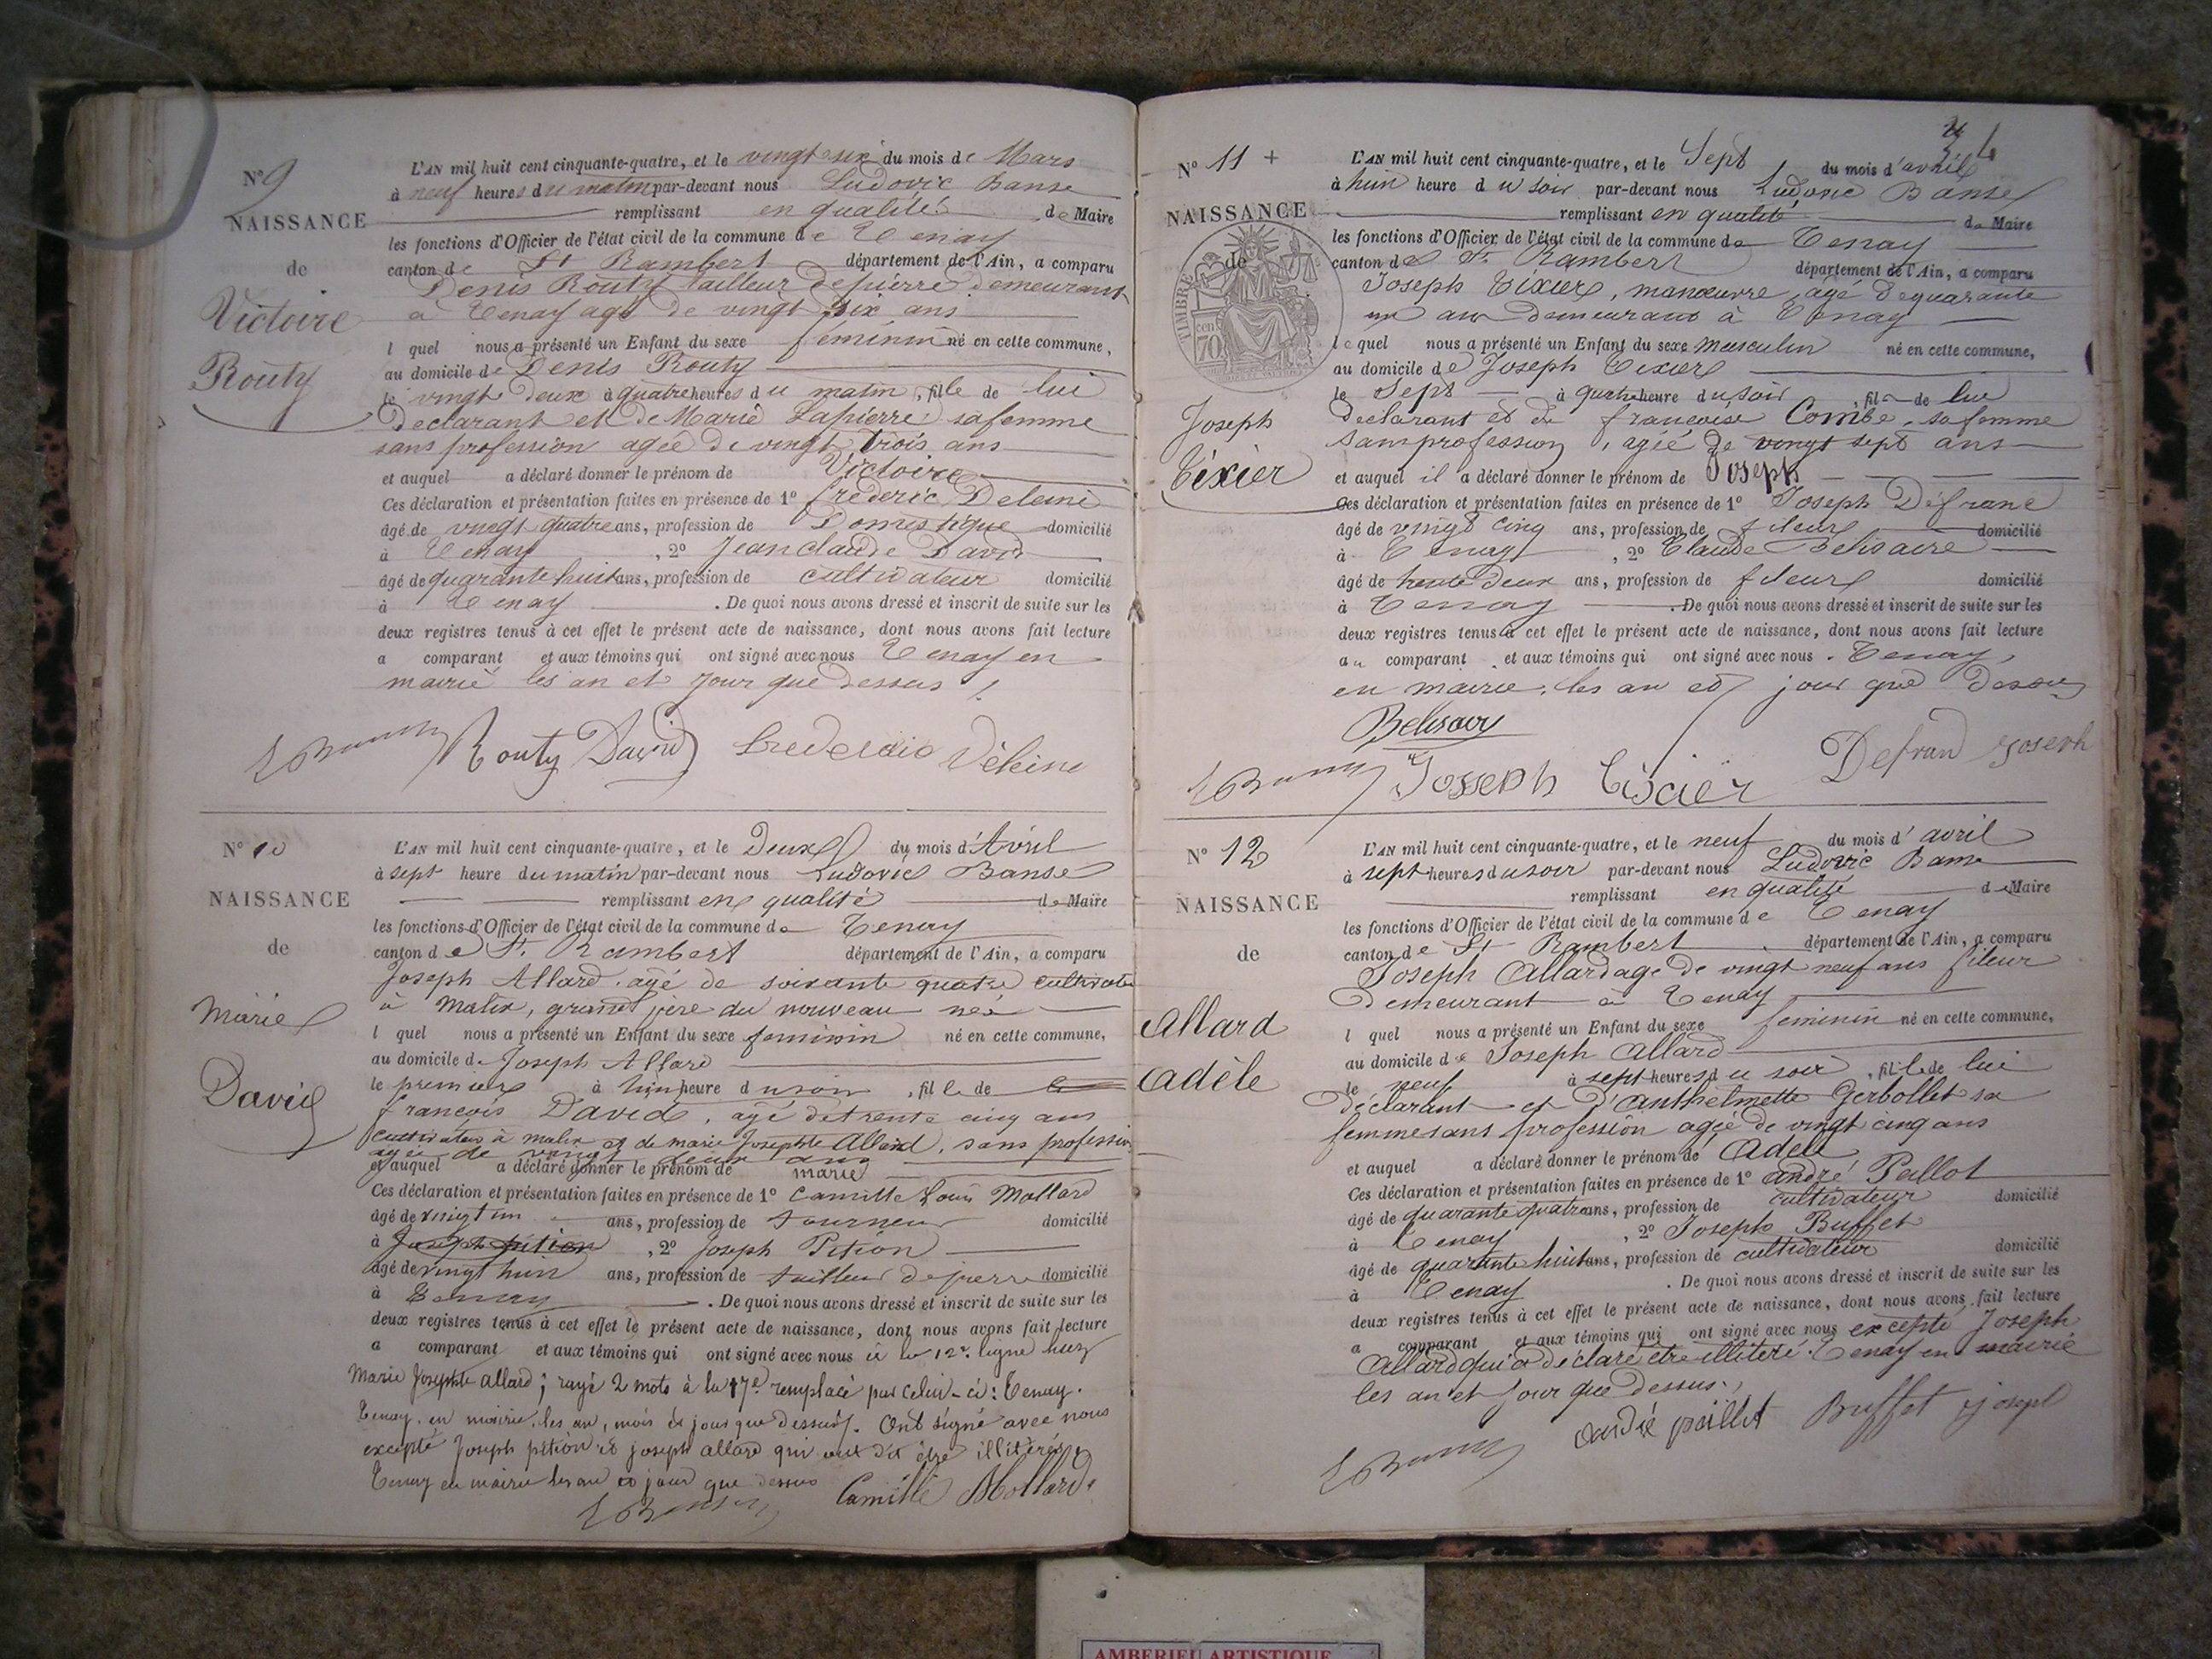 N° 9
NAISSANCE
de
Victoire
Routy
L'AN mil huit cent cinquante-quatre, et le vingt six du mois de Mars
à neuf heures du matin par-devant nous Ludovic Banse
remplissant en qualité de Maire
les fonctions d'Officier de l'état civil de la commune de Tenay
canton de St Rambert département de l'Ain, a comparu
Denis Routy tailleur depierre demeurant
à Tenay agé de vingt six ans
l quel nous a présenté un Enfant du sexe féminin né en cette commune,
au domicile de Denis Routy
le vingt deux à quatre heures du matin, fille de lui
declarant et de Marie Lapierre sa femme
sans profession agée de vingt trois ans
et auquel a déclaré donner le prénom de Victoire
Ces déclaration et présentation faites en présence de 1° frederic Deleine
âgé de vingt quatre ans, profession de Domestique domicilié
à Tenay, 2° Jean claude David
âgé de quarante huit ans, profession de cultivateur domicilié
à Tenay. De quoi nous avons dressé et inscrit de suite sur les
deux registres tenus à cet effet le présent acte de naissance, dont nous avons fait lecture
a comparant et aux témoins qui ont signé avec nous Tenay en
mairie les an et jour que dessus
Routy David frederic Déleine
N° 10
NAISSANCE
de
Marie
David
L'AN mil huit cent cinquante-quatre, et le Deux du mois d'Avril
à sept heure du matin par-devant nous Ludovic Banse
remplissant en qualité de Maire
les fonctions d'Officier de l'état civil de la commune de Tenay
canton de St. Rambert département de l'Ain, a comparu
Joseph Allard agé de soixante quatre cultivate
à Malix, grand père du nouveau né
l quel nous a présenté un Enfant du sexe feminin né en cette commune,
au domicile de Joseph Allard
le premier à hun heure du soir, fille de
françois David, agé detrente cinq ans
cultivateur à malix et de marie Josephte Allard, sans profession
agée de vingt deux ans
et auquel a déclaré donner le prénom de marie
Ces déclaration et présentation faites en présence de 1° Camille Louis Mollard
âgé de vingt un ans, profession de tourneur domicilié
à Joseph pition, 2° Joseph Pition
âgé de vingt huit ans, profession de tailleur de pierre domicilié
à Tenay. De quoi nous avons dressé et inscrit de suite sur les
deux registres tenus à cet effet le présent acte de naissance, dont nous avons fait lecture
a comparant et aux témoins qui ont signé avec nous à la 12e ligne lisez
Marie Josephte Allard; rayé 2 mots à la 17e remplacé par celui-ci: Tenay.
Tenay, en mairie, les an, mois et jour que dessus. Ont signé avec nous
excepté Joseph pition et joseph allard qui ont dit être illitérés.
Tenay en mairie les an et jour que dessus
Camille Mollard
N° 11 +
NAISSANCE
de
TIMBRE
70 cen
Joseph
Téxier
L'AN mil huit cent cinquante-quatre, et le Sept du mois d'avril
à hun heure du soir par-devant nous Ludovic Banse
remplissant en qualité de Maire
les fonctions d'Officier de l'état civil de la commune de Tenay
canton de St. Rambert département de l'Ain, a comparu
Joseph Téxier, manœuvre, agé dequarante
un ans demeurant à Tenay
le quel nous a présenté un Enfant du sexe masculin né en cette commune,
au domicile de Joseph Texier
le Sept à quatre heure du soir, fils de lui
déclarant et de francoise Combe, sa femme
sans profession, agée de vingt sept ans
et auquel il a déclaré donner le prénom de Joseph
Ces déclaration et présentation faites en présence de 1° Joseph Défranc
âgé de vingt cinq ans, profession de fileur domicilié
à Tenay, 2° Claude Belisaire
âgé de trente deux ans, profession de fileur domicilié
à Tenay. De quoi nous avons dressé et inscrit de suite sur les
deux registres tenus à cet effet le présent acte de naissance, dont nous avons fait lecture
au comparant et aux témoins qui ont signé avec nous. Tenay,
en mairie, les an et jour que dessus
Joseph Tiscier Defrand Joseph
N° 12
NAISSANCE
de
Allard
Adèle
L'AN mil huit cent cinquante-quatre, et le neuf du mois d'avril
à sept heures du soir par-devant nous Ludovic Banse
remplissant en qualité de Maire
les fonctions d'Officier de l'état civil de la commune de Tenay
canton de St Rambert département de l'Ain, a comparu
Joseph Allard agé de vingt neuf ans fileur
demeurant à Tenay
l quel nous a présenté un Enfant du sexe feminin né en cette commune,
au domicile de Joseph Allard
le neuf à sept heures du soir, fille de lui
déclarant et d'anthelmette Gerbollet sa
femme sans profession agée de vingt cinq ans
et auquel a déclaré donner le prénom de Adèle
Ces déclaration et présentation faites en présence de 1° andré Paillot
âgé de quarante quatre ans, profession de cultivateur domicilié
à Tenay, 2° Joseph Buffet
âgé de quarante huit ans, profession de cultivateur domicilié
à Tenay. De quoi nous avons dressé et inscrit de suite sur les
deux registres tenus à cet effet le présent acte de naissance, dont nous avons fait lecture
a comparant et aux témoins qui ont signé avec nous excepté Joseph
Allard qui a déclaré etre illiteré. Tenay en mairie
les an et jour que dessus.
andré paillet Buffet joseph
AMBERIEU ARTISTIQUE